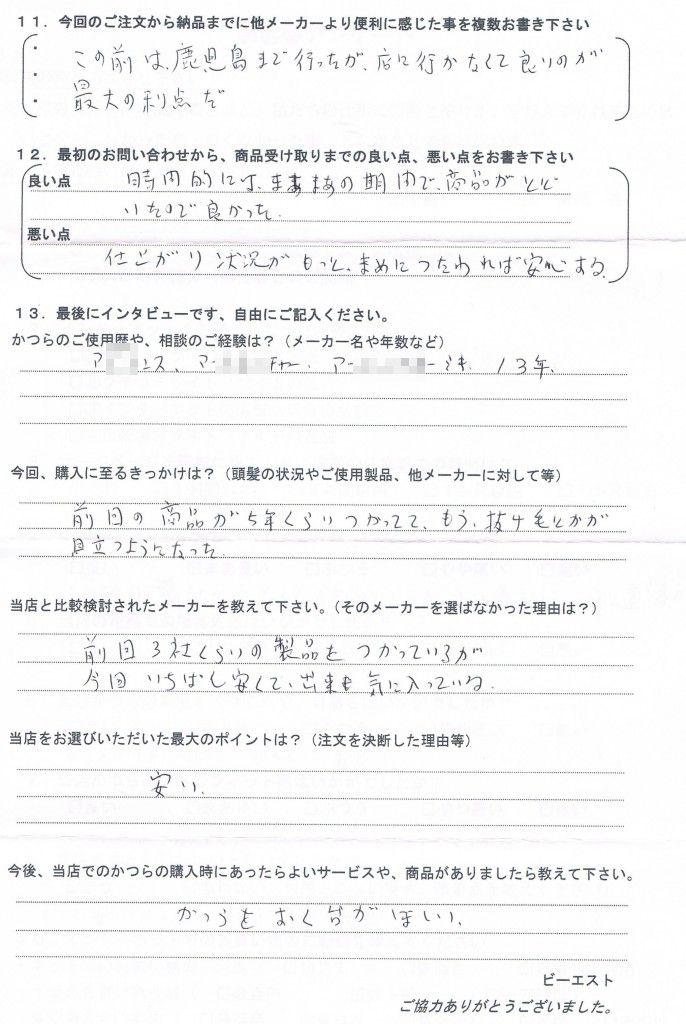 11．今回のご注文から納品までに他メーカーより便利に感じた事を複数お書き下さい
・この前は、鹿児島まで行ったが、店に行かなくて良いのが
・
・最大の利点だ
12．最初のお問い合わせから、商品受け取りまでの良い点、悪い点をお書き下さい
良い点 時間的には、まあまあの期間で、商品がとど
いたので良かった。
悪い点
仕上がり状況がもっと、まめにつたわれば安心する。
13．最後にインタビューです、自由にご記入ください。
かつらのご使用歴や、相談のご経験は？（メーカー名や年数など）
ア ンス、ア チャー、アー ーミキ、13年、
今回、購入に至るきっかけは？（頭髪の状況やご使用製品、他メーカーに対して等）
前回の商品が5年くらいつかってて、もう、抜け毛とかが
目立つようになった。
当店と比較検討されたメーカーを教えて下さい。（そのメーカーを選ばなかった理由は？）
前回3社くらいの製品をつかっているが
今回いちばん安くて、出来も気に入っている。
当店をお選びいただいた最大のポイントは？（注文を決断した理由等）
安い。
今後、当店でのかつらの購入時にあったらよいサービスや、商品がありましたら教えて下さい。
かつらをおく台がほしい。
ビーエスト
ご協力ありがとうございました。